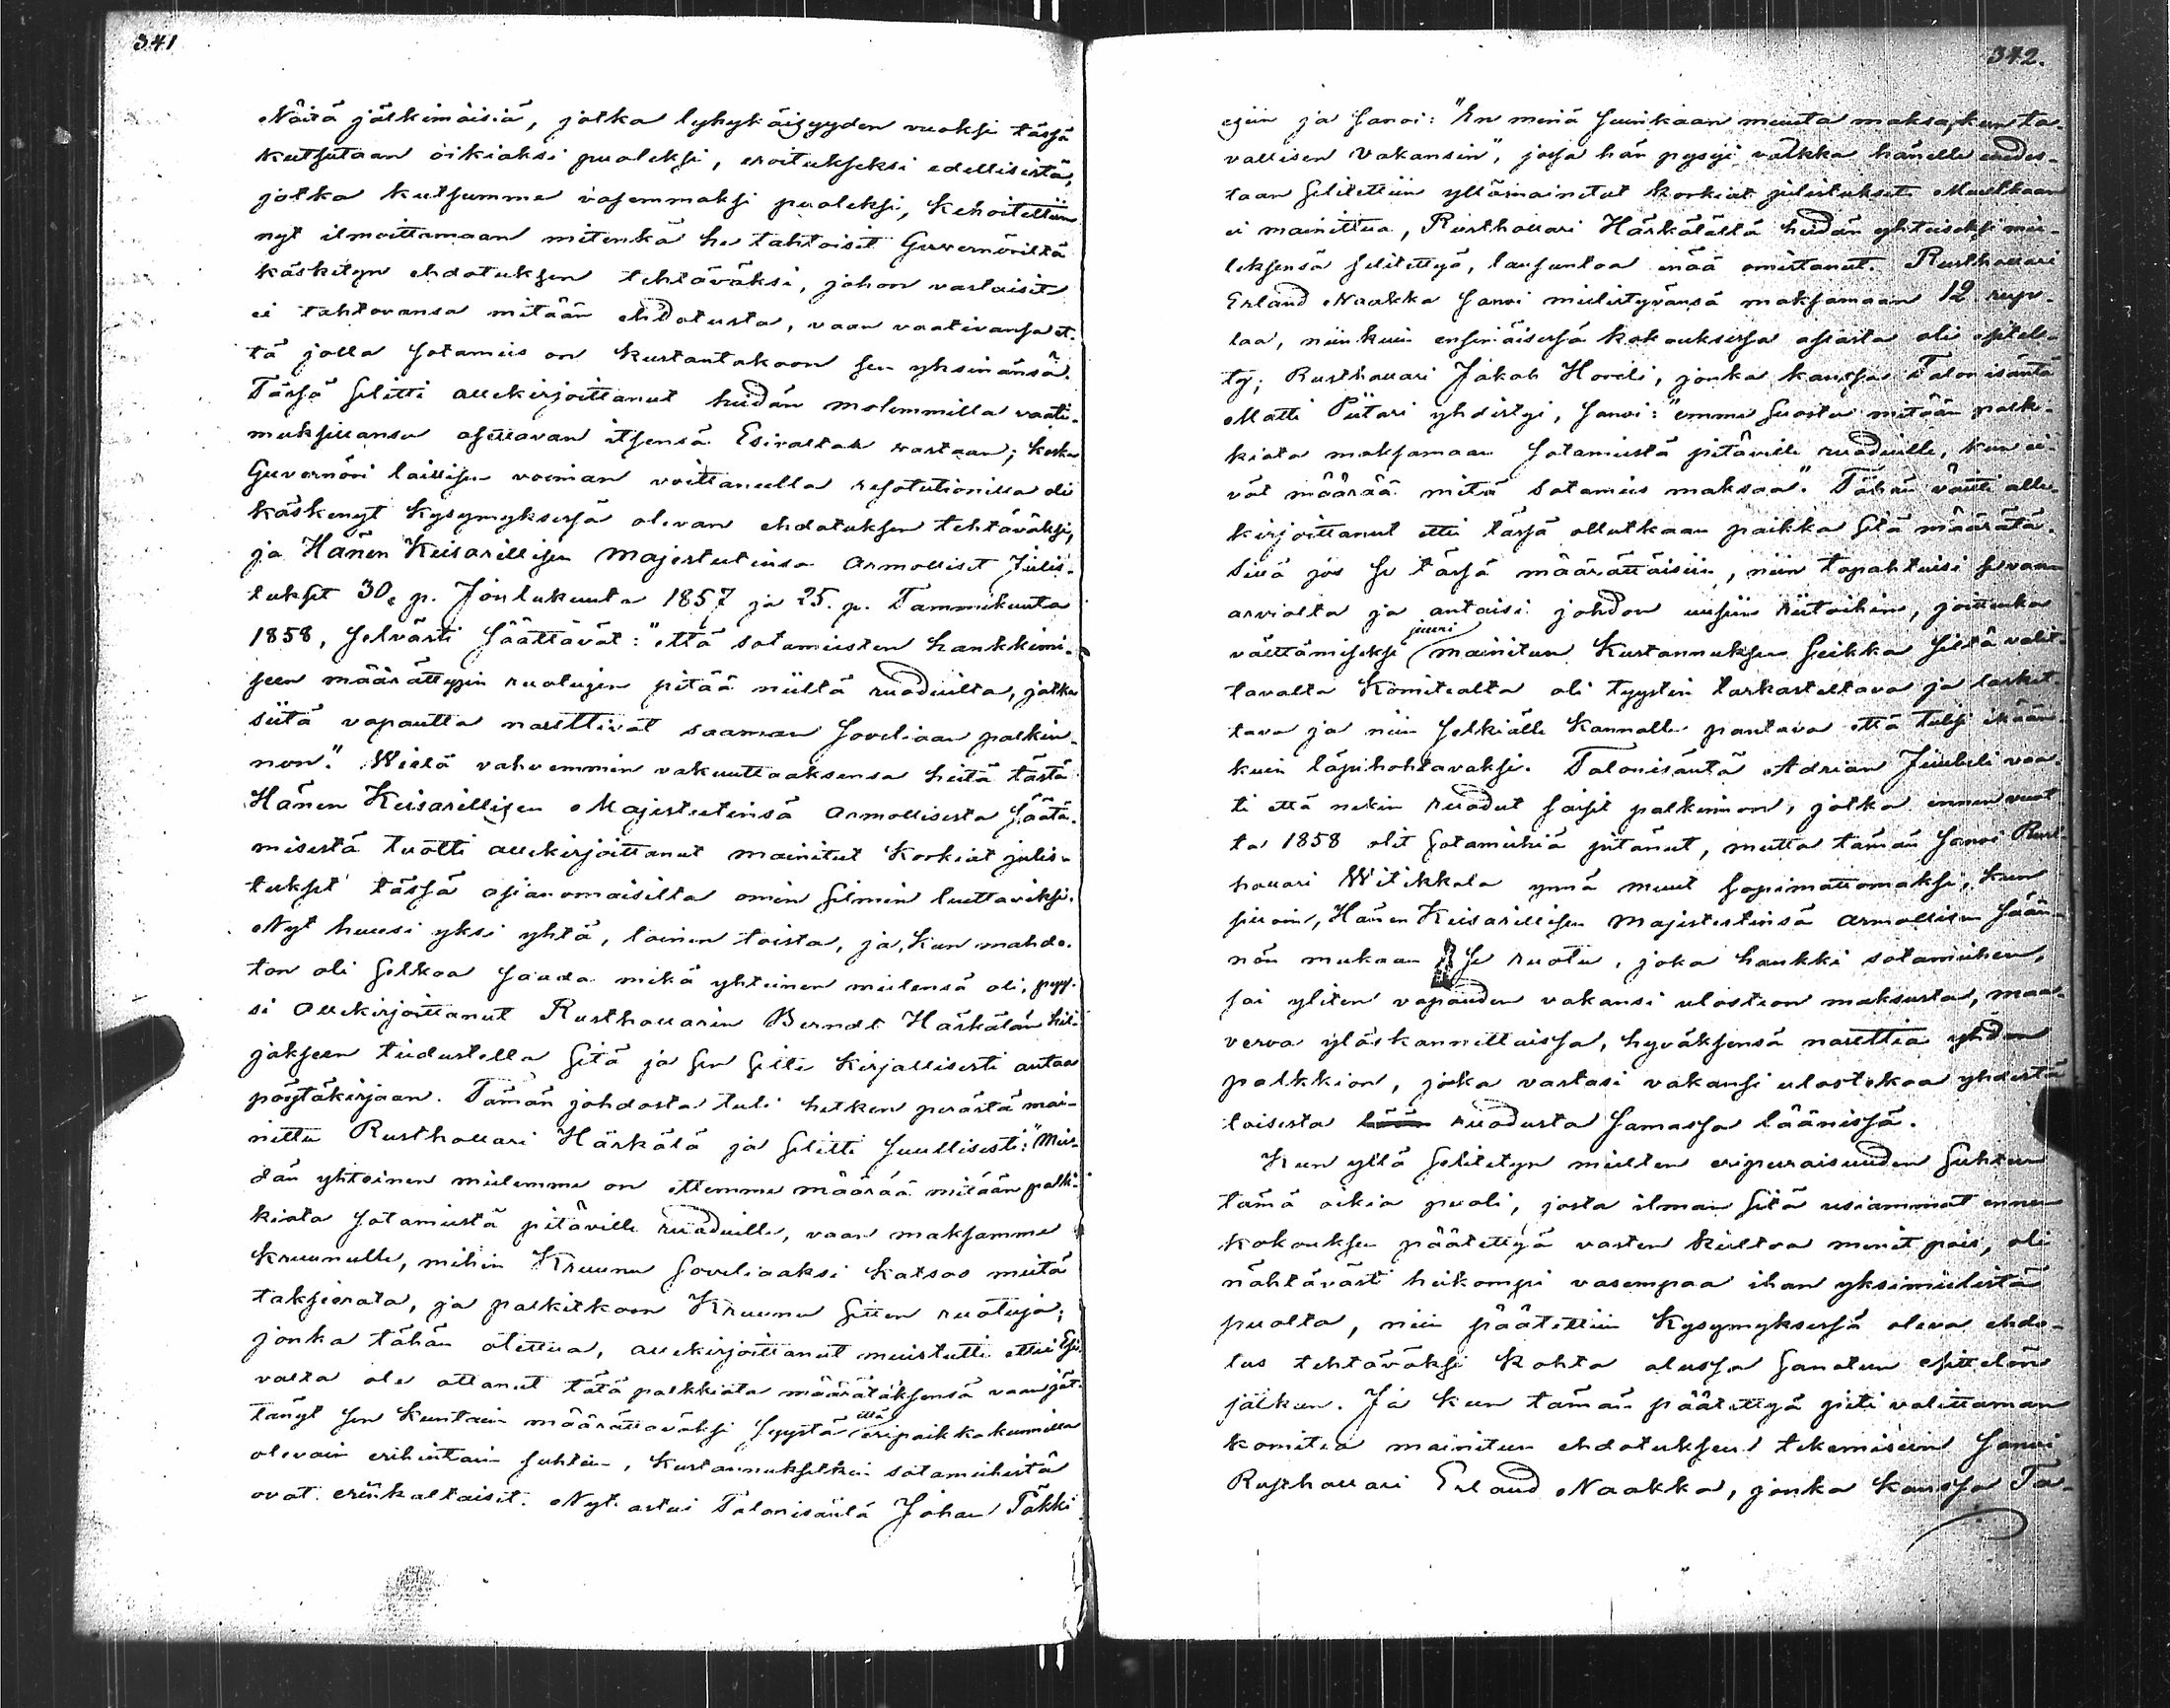 341
Näitä jälkimäisiä, jotka lyhykäisyyden vuoksi tässä
kutsutaan oikiaksi puoleksi, eroitukseksi edellisistä,
jotka kutsumme vasemmaksi puoleksi, kehoitettiin
nyt ilmoittamaan mitenkä he tahtoisit Guvernöriltä
käsketyn ehdotuksen tehtäväksi, johon vastaisit
ei tahtovansa mitään ehdotusta, vaan vaativansa et-
tä jolla sotamies on kustantakoon sen yksinänsä.
Tässä selitti allekirjoittanut heidän molemmilla vaati-
muksillansa asettavan itsensä Esivallan vastaan; koska
Guvernöri laillisen voiman voittaneella resolutionilla oli
käskenyt kysymyksessä olevan ehdotuksen tehtäväksi,
ja Hänen Keisarillisen Majestetinsa Armolliset Julis-
tukset 30. p. Joulukuuta 1857 ja 25. p. Tammikuuta
1858, selvästi säättävät: "että sotamiesten hankkimi-
seen määrättyin ruotujen pitää niiltä ruoduilta, jotka
siitä vapautta nauttivat saaman soveliaan palkin-
non." Wielä vahvemmin vakuuttaaksensa heitä tästä
Hänen Keisarillisen Majestetinsä Armollisesta säätä-
misestä tuotti allekirjoittanut mainitut korkiat julis-
tukset tässä asianomaisilta omin silmin luettaviksi.
Nyt huusi yksi yhtä, toinen toista, ja, kun mahdo-
ton oli selkoa saada mikä yhteinen mielensä oli, pyy-
si allekirjoittanut Rusthollarin Berndt Härkälän hil-
jakseen tiedustella sitä ja sen sitte kirjallisesti antaa
pöytäkirjaan. Tämän johdosta tuli hetken perästä mai-
nittu Rusthollari Härkälä ja selitti suullisesti: "Mei-
dän yhteinen mielemme on ettemme määrää mitään palk-
kiota sotamiestä pitäville ruoduille, vaan maksamme
kruunulle, mihin Kruunu soveliaaksi katsoo meitä
takseerata, ja palkitkoon Kruunu sitten ruotuja;
jonka tähän otettua, allekirjoittanut muistutti ettei Esi-
valta ole ottanut tätä palkkiota määrätäksensä vaan jät-
tänyt sen kuntain määrättäväksi syystä että eripaikkakunnilla
olevain erihintain suhteen, kustannuksetkin sotamiehistä
ovat erinkaltaisit. Nyt astui Talonisäntä Johan Täkki
342.
esiin ja sanoi: "En minä suinkaan muuta maksa, kun ta-
vallisen Vakansin", jossa hän pysyi vaikka hänelle uudes-
taan selitettiin ylläsmainitut korkiat julistukset. Muutkaan
ei mainittua, Rusthollari Härkälältä heidän yhteiseksi mie-
leksensä selitettyä, lausuntoa enää omistanut. Rusthollari
Erland Naakka sanoi mielistyvänsä maksamaan 12 rup-
laa, niinkuin ensimäisessä kokouksessa asiasta oli esitel-
ty; Rusthollari Jakob Hoveli, jonka kanssa Talonisäntä
Matti Piitari yhdistyi, sanoi: "emme suostu mitään palk-
kiota maksamaan sotamiestä pitäville ruoduille, kun ei-
vät määrää mitä sotamies maksaa." Tähän väitti alle-
kirjoittanut ettei tässä ollutkaan paikka sitä määrätä.
Sillä jos se tässä määrättäisiin, niin tapahtuisi se vaan
arviolta ja antaisi johdon uusiin riitoihin, joittenka
välttämiseksi juuri mainitun kustannuksen seikka siltä valit-
tavalta Komitealta oli tyystin tarkasteltava ja lasket-
tava ja niin selkiälle kannalle pantava että tulisi ikään-
kuin läpihohtavaksi. Talonisäntä Adrian Juubeli vaa-
ti että nekin ruodut saisit palkinnon, jotka ennen vuot-
ta 1858 olit sotamiehiä pitänut, mutta tämän sanoi Rust-
hollari Witikkala ynnä muut sopimattomaksi, kun
silloin, Hänen Keisarillisen Majestetinsä Armollisen Sään-
nön mukaan se ruotu, joka hankki sotamiehen,
sai yliten vapauden vakansi ulosteon maksusta, maa-
verva yläskannettaissa, hyväksensä nauttia yhden
palkkion, joka vastasi vakansi ulostekoa yhdestä
toisesta ruodusta samassa läänissä.
Kun yllä selitetyn mielten eripuraisuuden suhteen
tämä oikia puoli, josta ilman sitä usiammat ennen
kokouksen päätettyä vasten kieltoa menit pois, oli
nähtävästi heikompi vasempaa ihan yksimielistä
puolta, niin päätettiin kysymyksessä oleva ehdo-
tus tehtäväksi kohta alussa sanotun esittelön
jälkeen. Ja kun tämän päätettyä piti valittaman
komitea mainitun ehdotuksen tekemiseen sanoi
Rusthollari Erland Naakka, jonka kanssa Ta-